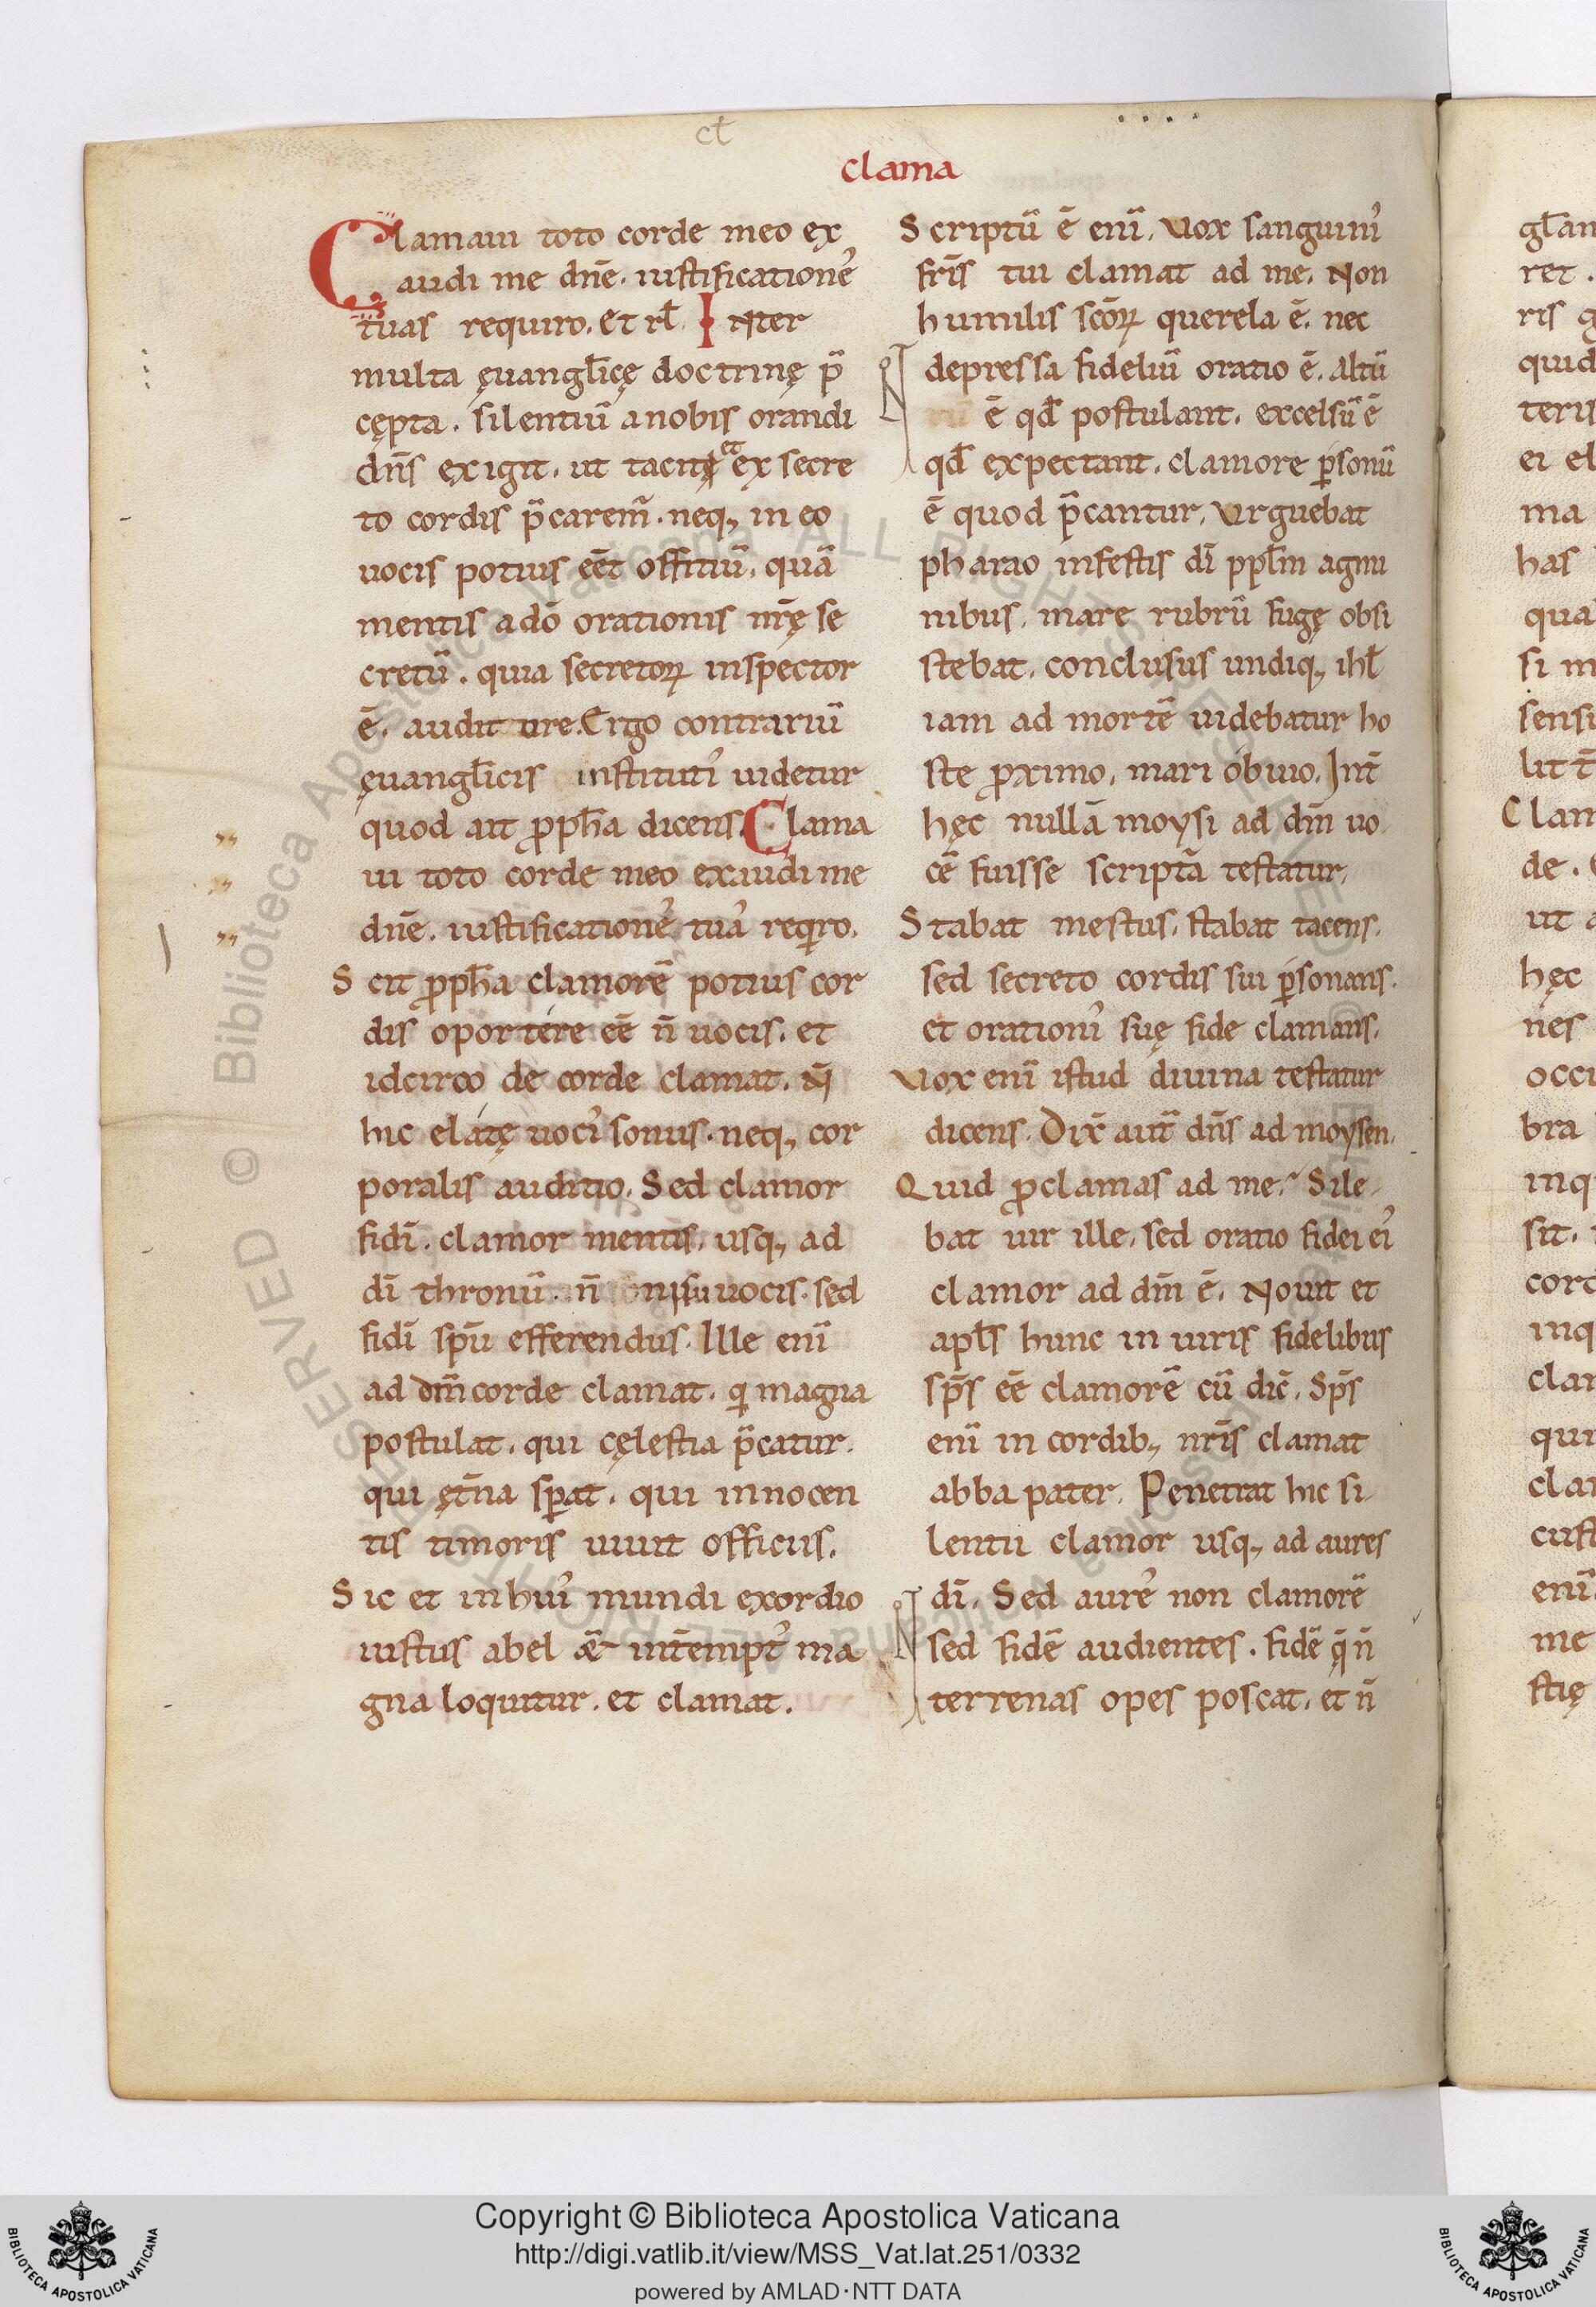 cł
clama
Clamaui toto corde meo ex
audi me dn̄e. iustificationeʼ
tuas requiro. et rł. INter
multa ęuangl̄icę doctrinę p̄
cępta. silentiū a nobis orandi
dn̄s exigit. ut tacitę et ex secre
to cordis p̄caremr̄. neq; in eo
uocis potius eēt offitiū. quā
mentis ad dō orationis nr̄ę se
cretū. quia secretoꝝ inspector
ē. audit ure. Ergo contrariū
ęuangl̄icis institutiʼ uidetur
quod ait ꝓph̄a dicens. Clama
ui toto corde meo exaudi me
dn̄e. iustificationeʼ tuaʼ reqiro.
Scit ꝓph̄a clamorē potius cor
dis oportere eē n̄ uocis. et
idcirco de corde clamat. N̄
hic elatę uociʼ sonus. neq; cor
poralis auditio. Sed clamor
fidī. clamor mentis. usq; ad
dī thronū. n̄ nisu uocis. sed
fidī spū efferendus. Ille enī
ad dm̄ corde clamat. qi magna
postulat. qui cęlestia p̄catur.
qui ęt̄na sꝑat. qui innocen
tis timoris uiuit officiis.
Sic et in huiʼ mundi exordio
iustus abel & intemptʼ ma
gna loquitur. et clamat.
Scriptū ē enī. Vox sanguiniʼ
fr̄is tui clamat ad me. Non
humilis scōꝝ querela ē. nec
depressa fideliū oratio ē. Altū
ē qd̄ postulant. excelsū ē
qd̄ expectant. clamore ꝑsonū
ē quod p̄cantur. Vrguebat
pharao infestis dī ppl̄m agmi
nibus. mare rubrū fugę obsi
stebat. conclusus undiq; ihl̄
iam ad mortē uidebatur ho
ste ꝓximo. mari obuio. Int̄
hęc nullā moysi ad dm̄ uo
cē fuisse scriptā testatur.
Stabat mestus. stabat tacens.
sed secreto cordis sui ꝑsonans.
et orationiʼ suę fide clamans.
Vox enī istud diuina testatur
dicens. Dix̄ aut̄ dn̄s ad moysen.
Quid ꝓclamas ad me? Sile
bat uir ille. sed oratio fidei eiʼ
clamor ad dm̄ ē. Nouit et
apl̄s hunc in uiris fidelibus
sp̄s eē clamorē cū dic̄. Sp̄s
enī in cordib; nr̄is clamat
abba pater. Penetrat hic si
lentii clamor usq; ad aures
dī. Sed aureʼ non clamorē
sed fidē audientes. fidē q̄ n̄
terrenas opes poscat. et n̄
gl̄am
ret.
ris q
quid
teris
ei el
ma
has
qua
si m
sensi
lit t̄
Clam
de.
ut a
hęc
nes
occi
bra
inq
sit.
cord
inq
clam
qui
clam
cust
enī
me
stię
Copyright © Biblioteca Apostolica Vaticana
http://digi.vatlib.it/view/MSS_Vat.lat.251/0332
powered by AMLAD·NTT DATA